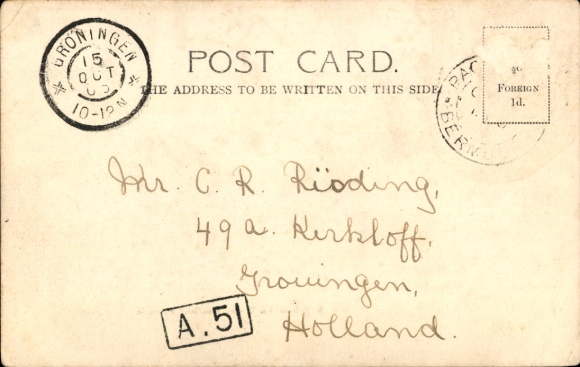 GRONINGEN
15
OCT
10-12N
POST CARD.
THE ADDRESS TO BE WRITTEN ON THIS SIDE
FOREIGN
1d.
Mr. C. R. Rïoding,
49a. Kerkloff,
Groningen,
Holland.
A.51